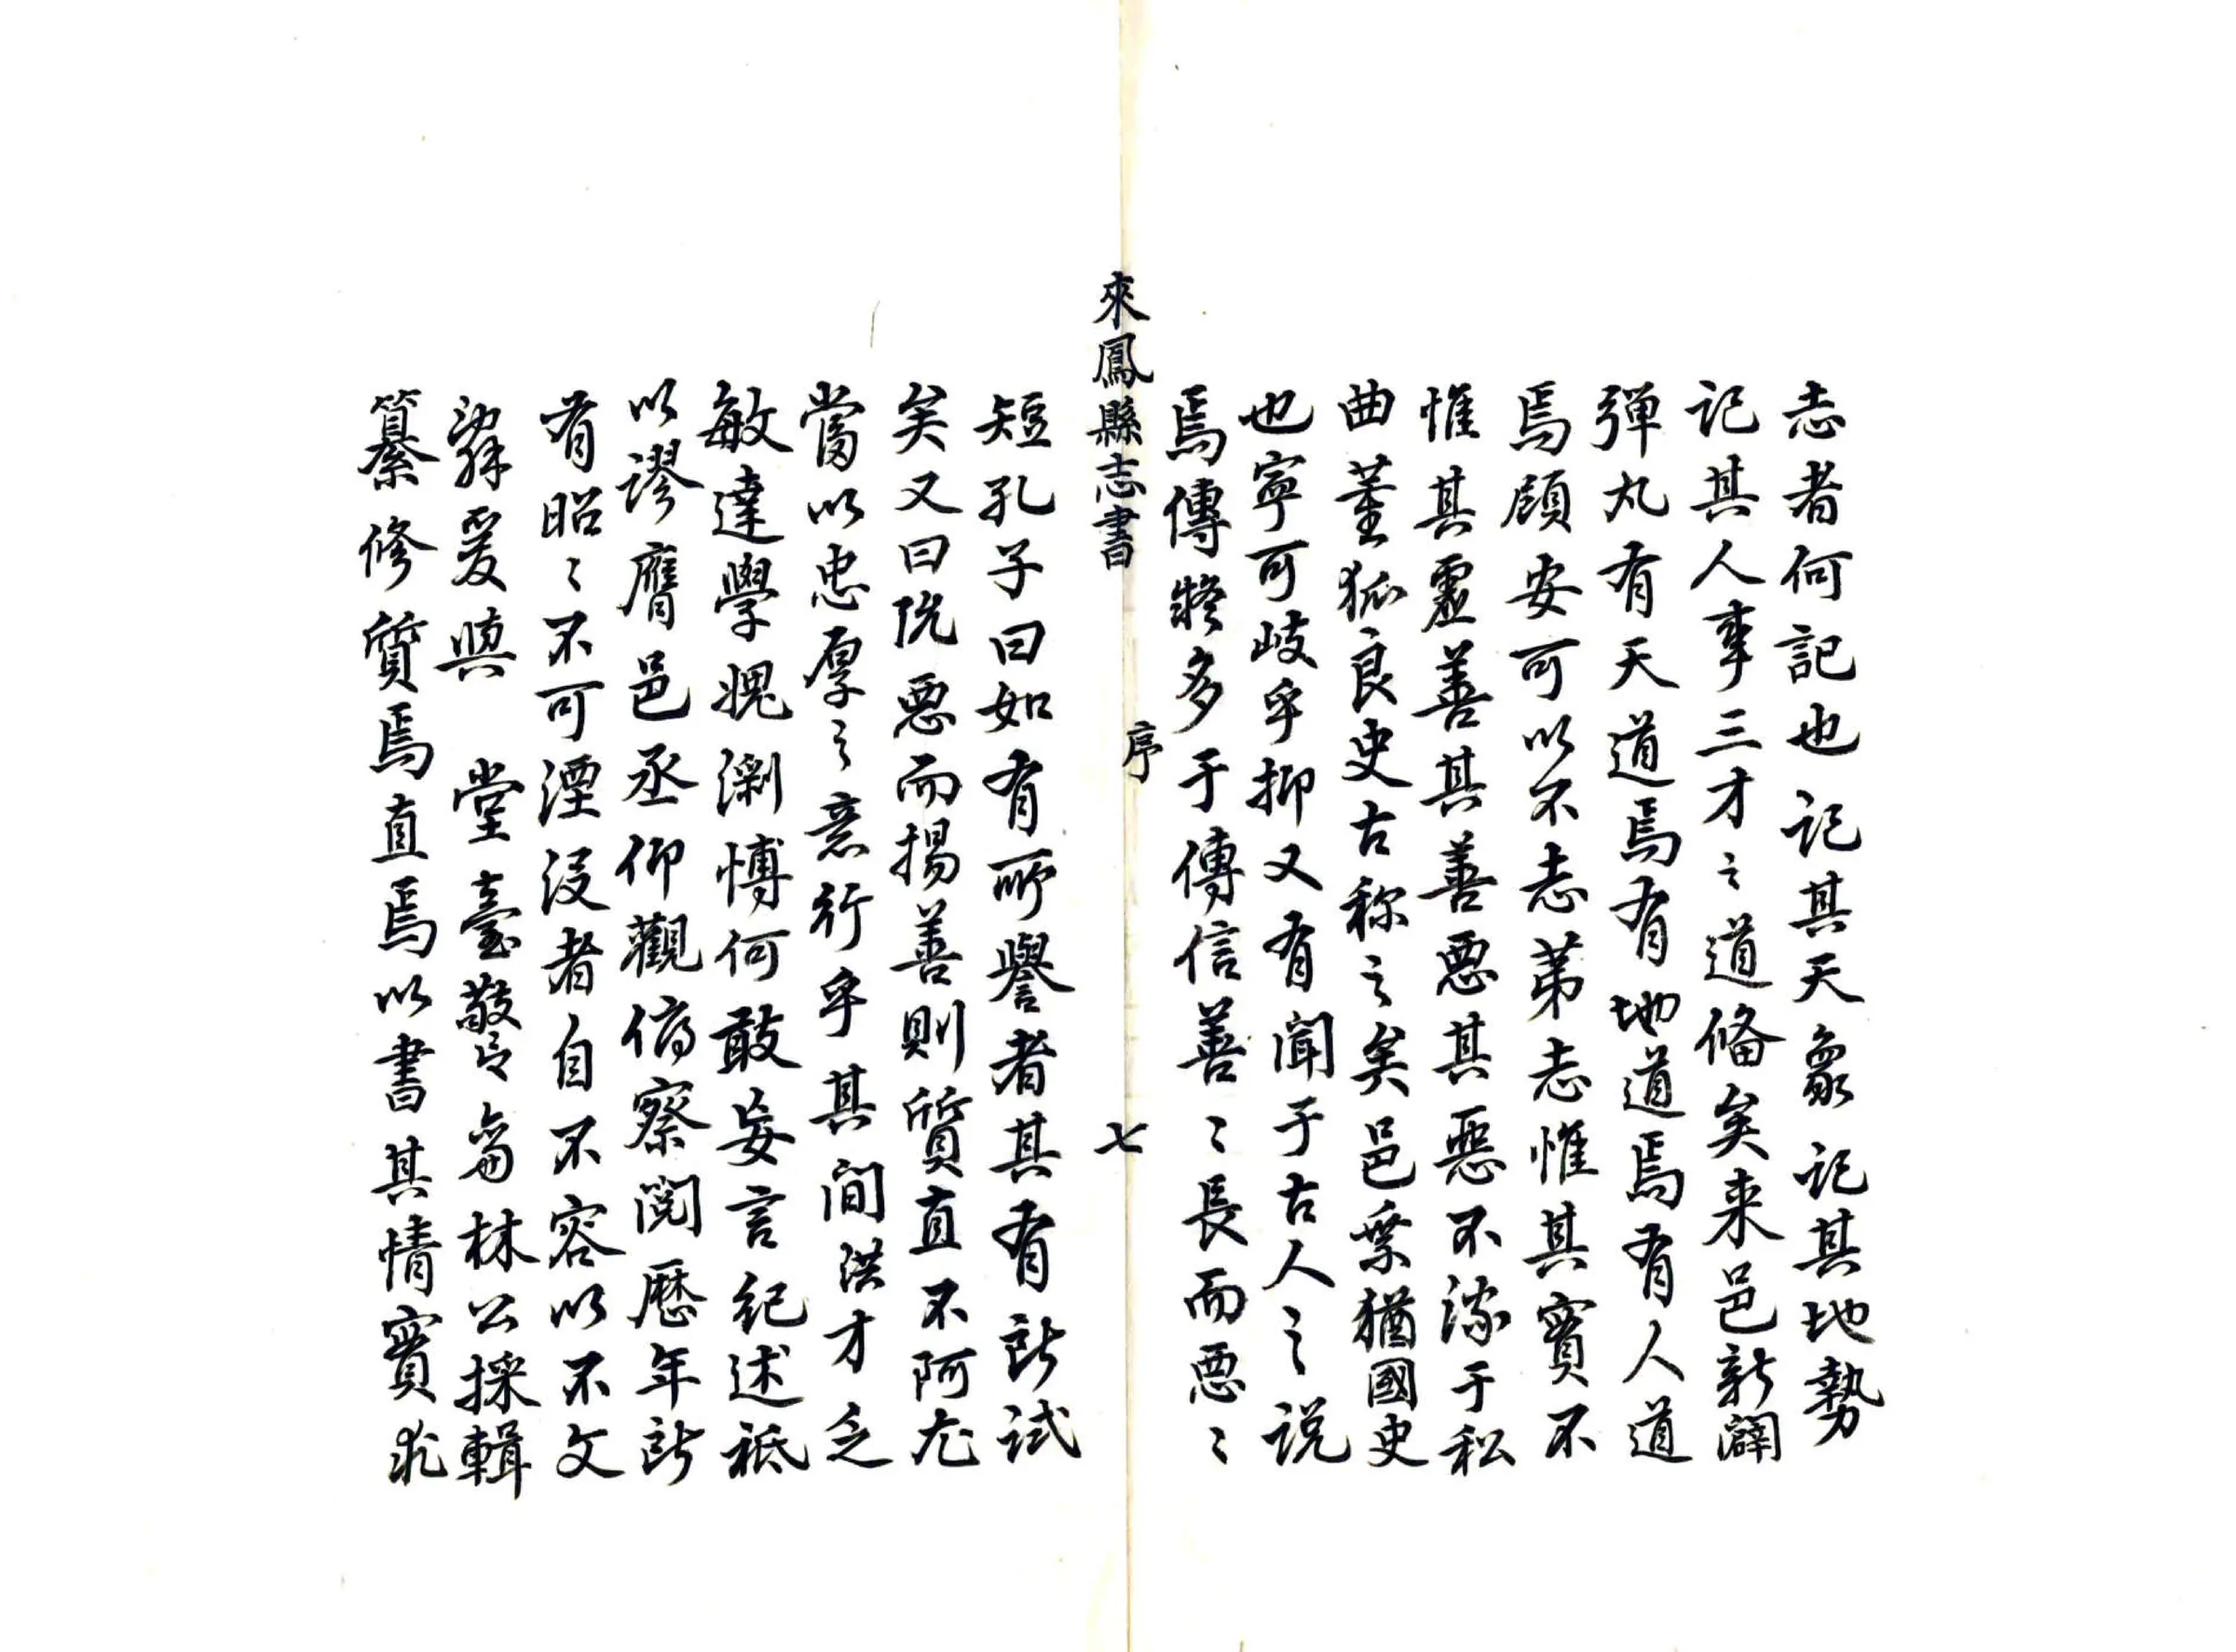 志者何記也記其天象記其地勢
記其人事三才之道俻矣来邑新闢
彈丸有天道焉有地道焉有人道
焉顧安可以不志苐志惟其實不
惟其虛善其善惡其惡不涉于私
曲董狐良史古称之矣邑乗猶國史
也寧可歧乎抑又有聞于古人之説
焉傳疑多于傳信善〻長而惡〻
來鳳縣志書
序
七
短孔子曰如有所譽者其有所試
矣又曰隐惡而揚善則質直不阿尤
當以忠厚之意行乎其间洪才乏
敏達學愧淵博何敢妄言紀述祗
以謬膺邑丞仰觀俯察閲歷年所
有昭〻不可湮没者自不容以不文
辭爰與 堂臺敬㫖林公採輯
纂修質焉直焉以書其情實求